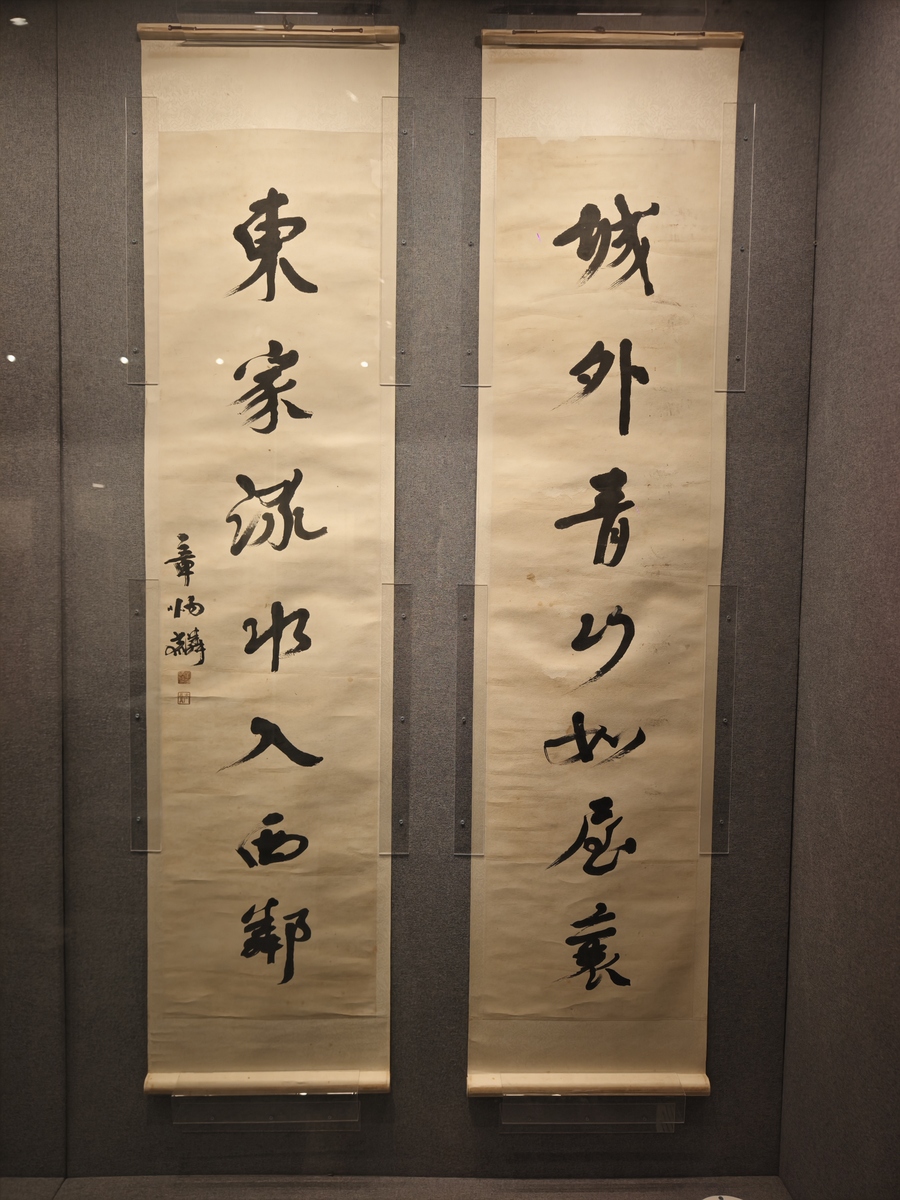 城外青山如屋裏
東家流水入西鄰
章炳麟